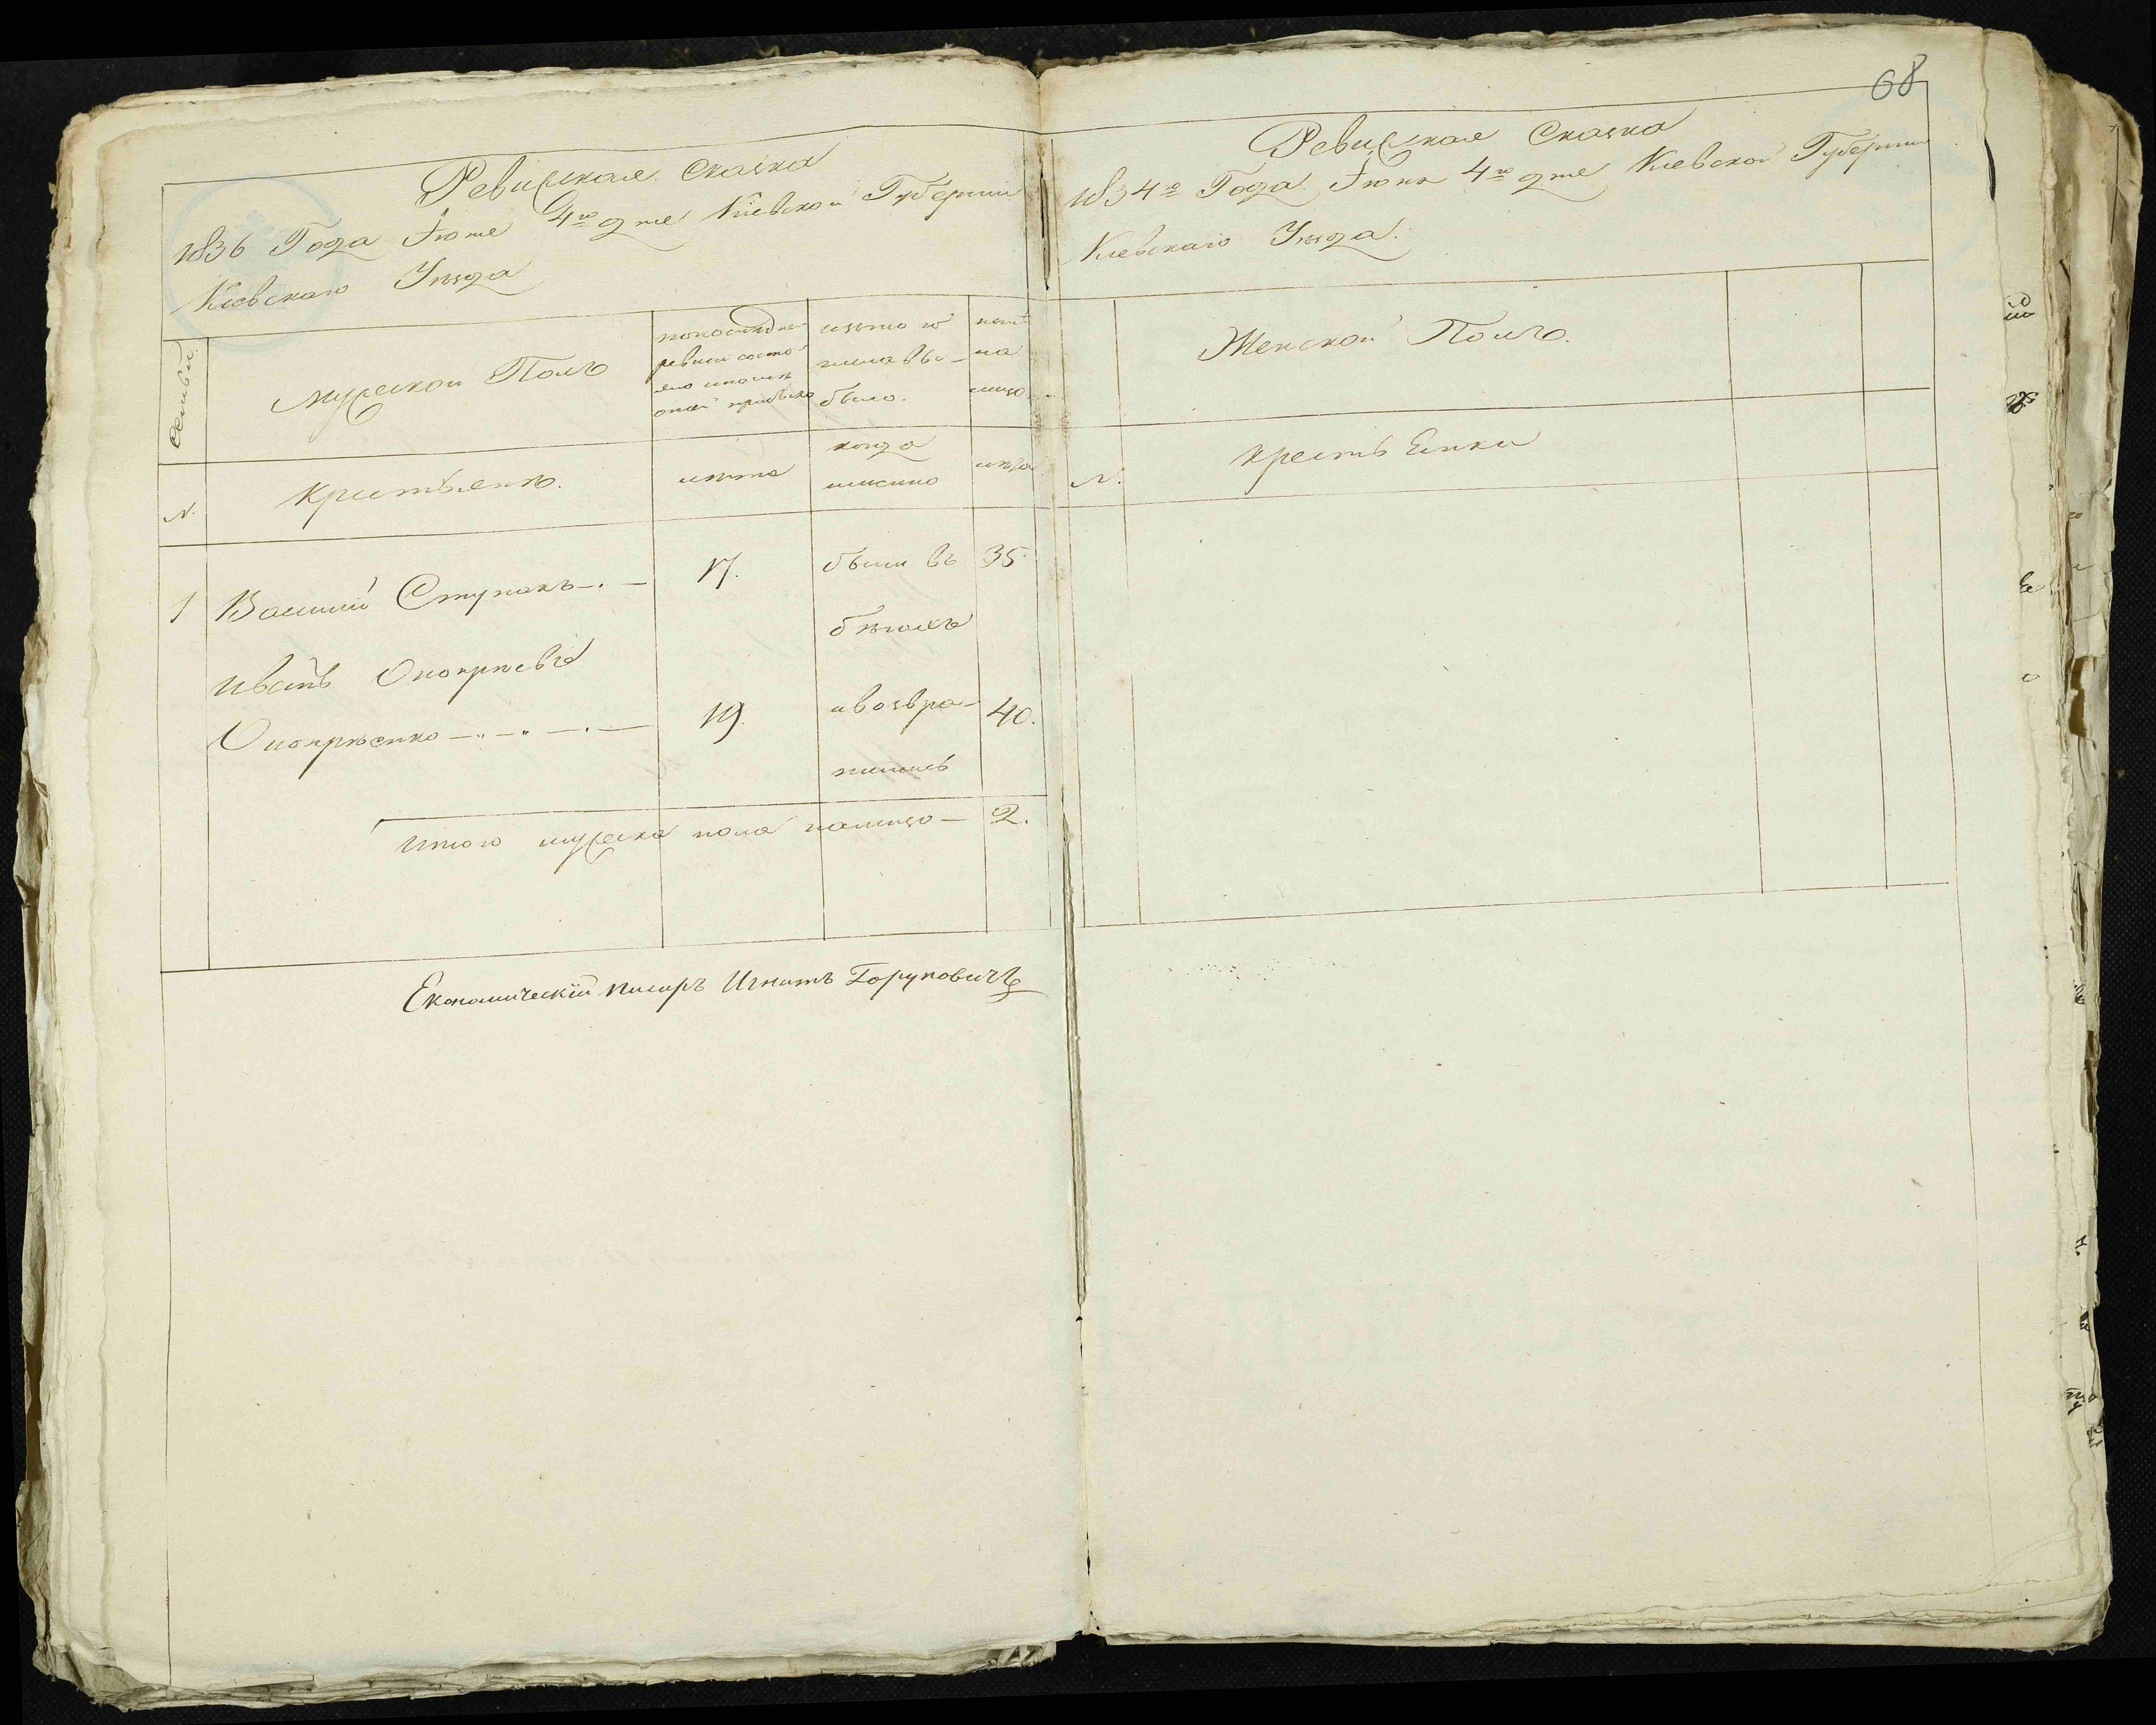 68
Ревизская Сказка
1836 Года Іюня 4го дня Кіевской Губерніи
Кіевскаго Уѣзда
Семьи
мужескои Полъ
попоследней
ревизіи состо
яло ипослѣ
оной прибыло
изъто го
числа вы-
было.
ныне
на
лицо
N.
Крестьянъ.
лѣта
когда
имянно
лѣта
1 Василій Ступакъ 17. были въ 35.
бѣгахъ
Иванъ Онопріевъ
Онопрѣенко 19. ивозвра- 40.
тились
Итого мужеска пола налицо 2.
Економическій писарь Игнатъ Горуновичъ
Ревизская Сказка
1834го Года Іюня 4го дня Кіевской Губерніи
Кіевскаго Уѣзда.
Женской Полъ.
N.
крестьянки